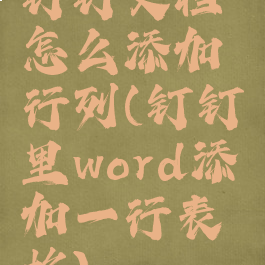 钉钉文档
怎么添加
行列(钉钉
里word添
加一行表
格)